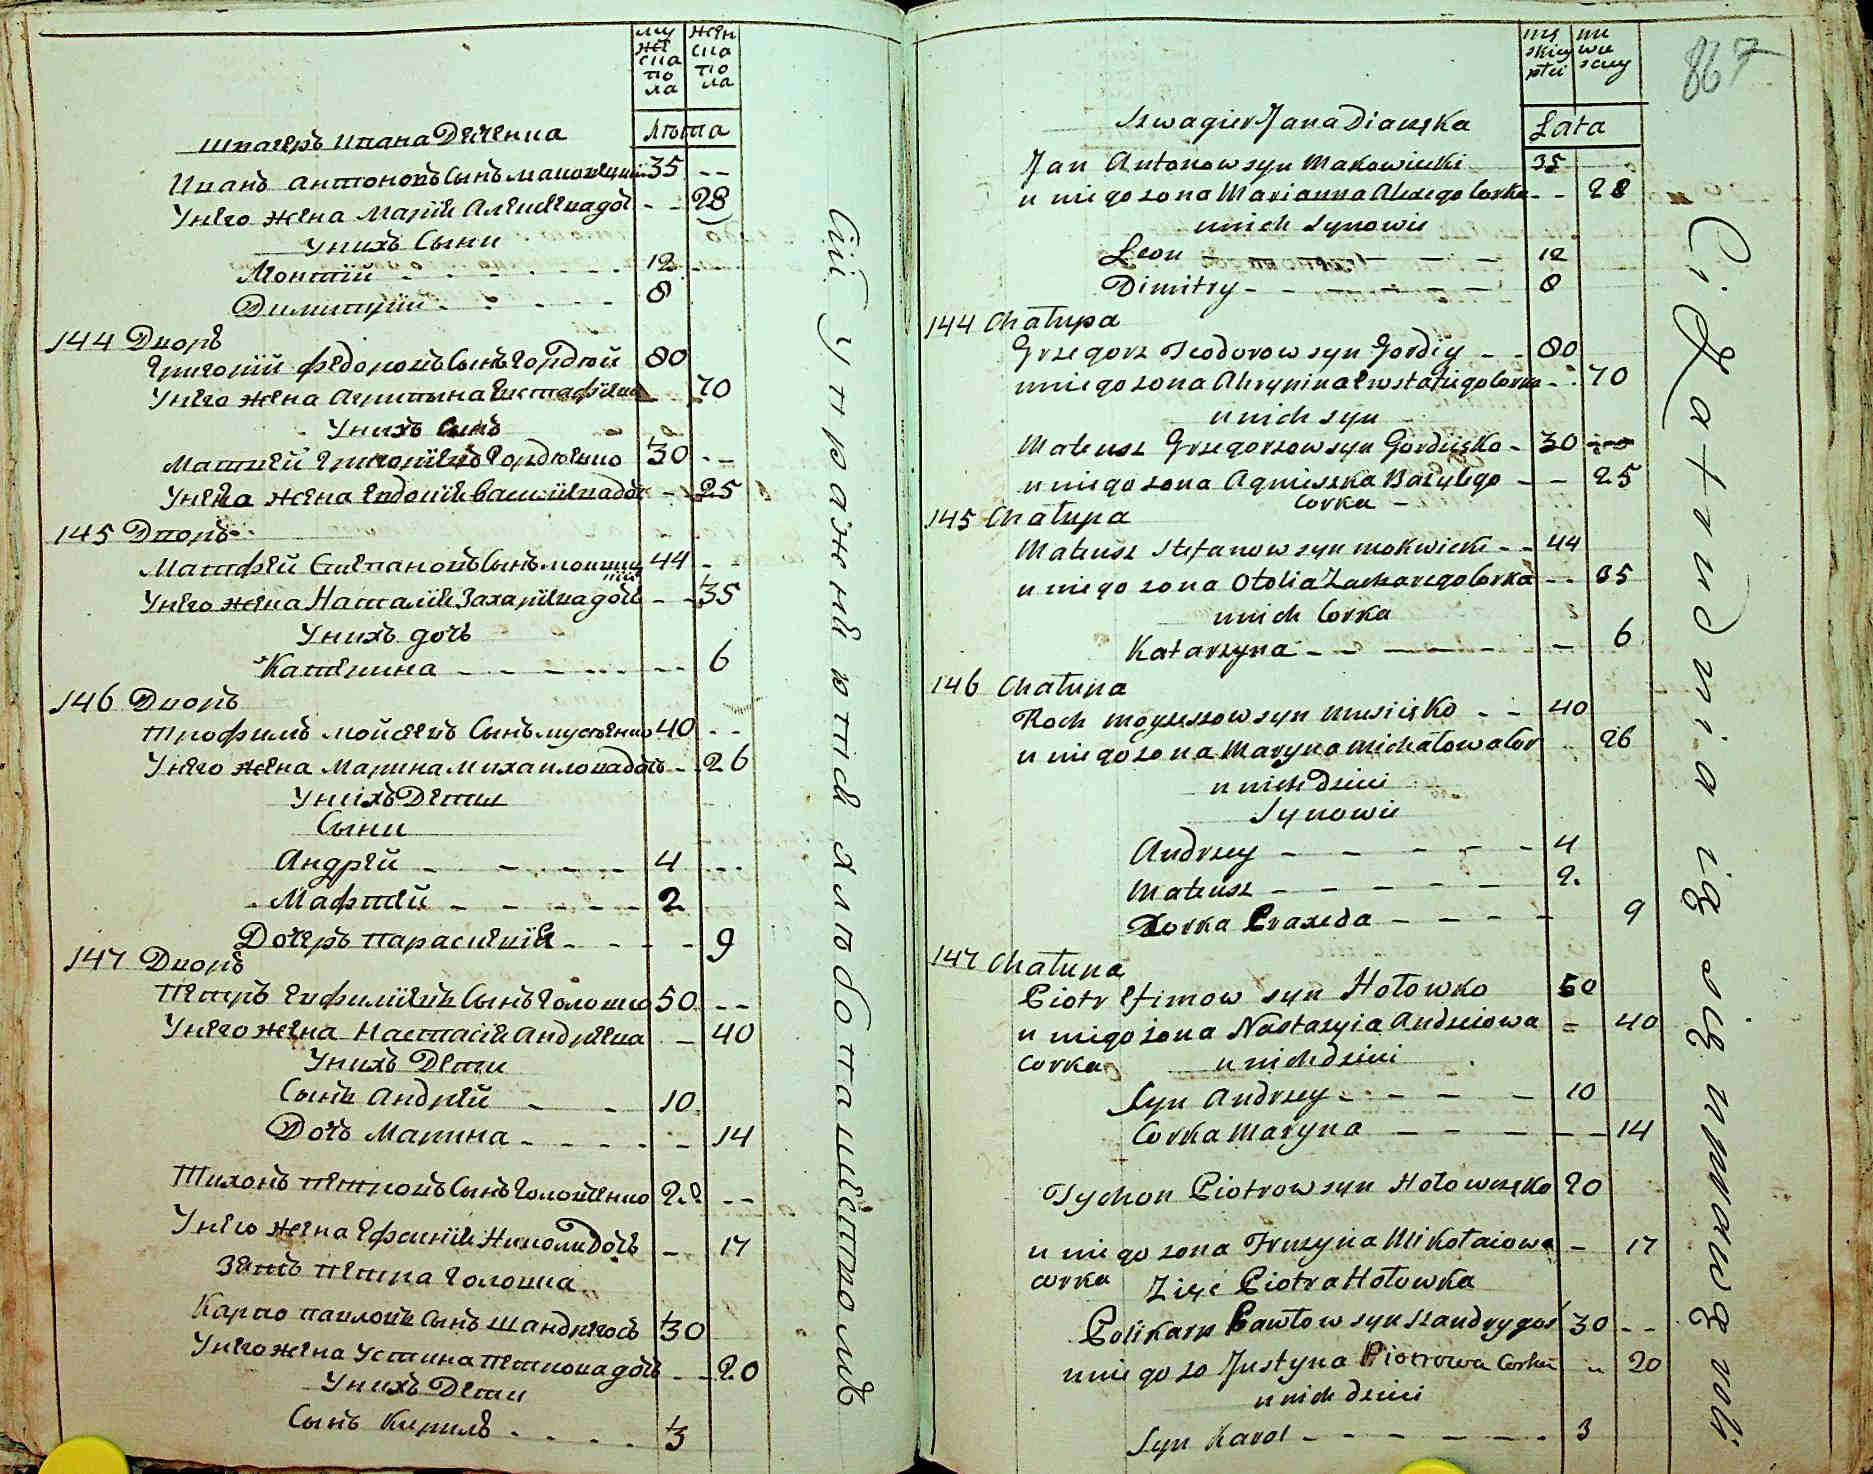 му
же
ска
по
ла
жен
ска
по
ла
Лѣта
Шваɾеръ Ивана Дяченка
Иванъ Антоновъ Сынъ Маковецкий 35 - -
У него жена Марія Алексѣева дочь - - 28
У нихъ Сыни
Леонтій - - - - 12
Димитрій - - - - 8
144 Дворъ
Григорій Федоровъ Сынъ Гордѣй 80
У него жена Агрипына Евстафіева 70
У нихъ Сынъ
Матвей Григоріевъ Гордіенко 30 - -
У него жена Евдокія Василіева доч - - 25
145 Дворъ
Матфей Степановъ Сынъ 44 - -
У него жена Наталія Захаріева дочь - - 35
У нихъ дочь
Катерина - - - - - 6
146 Дворъ
Трофимъ Мойсеевъ Сынъ Мусѣенко 40 - -
У него жена Марина Михаилова дочь - - 26
У нихъ Дети
Сыни
Андрей - - - - - 4 - -
Мафтей - - - - - 2
Дочеръ Параскевія - - - - 9
147 Дворъ
Петръ Евфиміевъ Сынъ Головко 50 - -
У него жена Настасія Андреева - 40
У нихъ Дети
Сынъ Андрей - - - 10
Дочь Марина - - - - - 14
Тихонъ Петровъ Сынъ Головченко 2.0 - -
У него жена Ефросинія Николаи дочь - 17
Зять Петра Головка
Карпо Павловъ Сынъ Шандригосъ 30
У него жена Устина Петрова дочь - - 20
У нихъ Дети
Сынъ Кирилъ - - - - 3
Сій Упражненіе
867
mę
skiey
płci
nie
wie
sciey
Lata
Szwagier Jana Diaczka
Jan Antonow syn Makowiecki 35
u niego zona Marianna Alexego Corka - - 28
u nich synowie
Leon - - - - - 12
Dimitry - - - - - - - 8
144 Chałupa
Grzegorz Teodorow syn Gordiy - - 80
u niego zona Ahrypina Ewstafiego Corka - - 70
u nich syn
Mateusz Grzegorzow syn Gordiięko - 30
u niego zona Agnieszka Bazylego - - 25
Corka -
145 Chałupa
Mateusz Stefanow syn Mokwicki - - 44
u niego zona Otolia Zacharego Corka - - 35
u nich Corka
Katarzyna - - - - - - - 6
146 Chałupa
Roch Moyzeszow syn Musięko - - 40
u niego zona Maryna Michałowa Cor 26
u nich Dzieci
Synowie
Andrzey - - - - - - 4
Mateusz - - - - - - 2.
Corka Praxeda - - - - - 9
147 Chałupa
Piotr Efimow syn Hołowko 50
u niego żona Nastazyia Andrzeiowa - 40
Corka u nich dzieci
Syn Andrzey - - - - - 10
Corka Maryna - - - - - - 14
Tychon Piotrow syn Hołowczęko 20
u niego zona Fruzyna Mikołaiowa - 17
Corka Zięć Piotra Hołowka
Polikarp Pawłow syn Szandrygoś 30 - -
u niego zo Justyna Piotrowa Corka - 20
u nich dzieci
Syn Karol - - - - - - 3
Ci Zatrudnia ią się uprawą roli